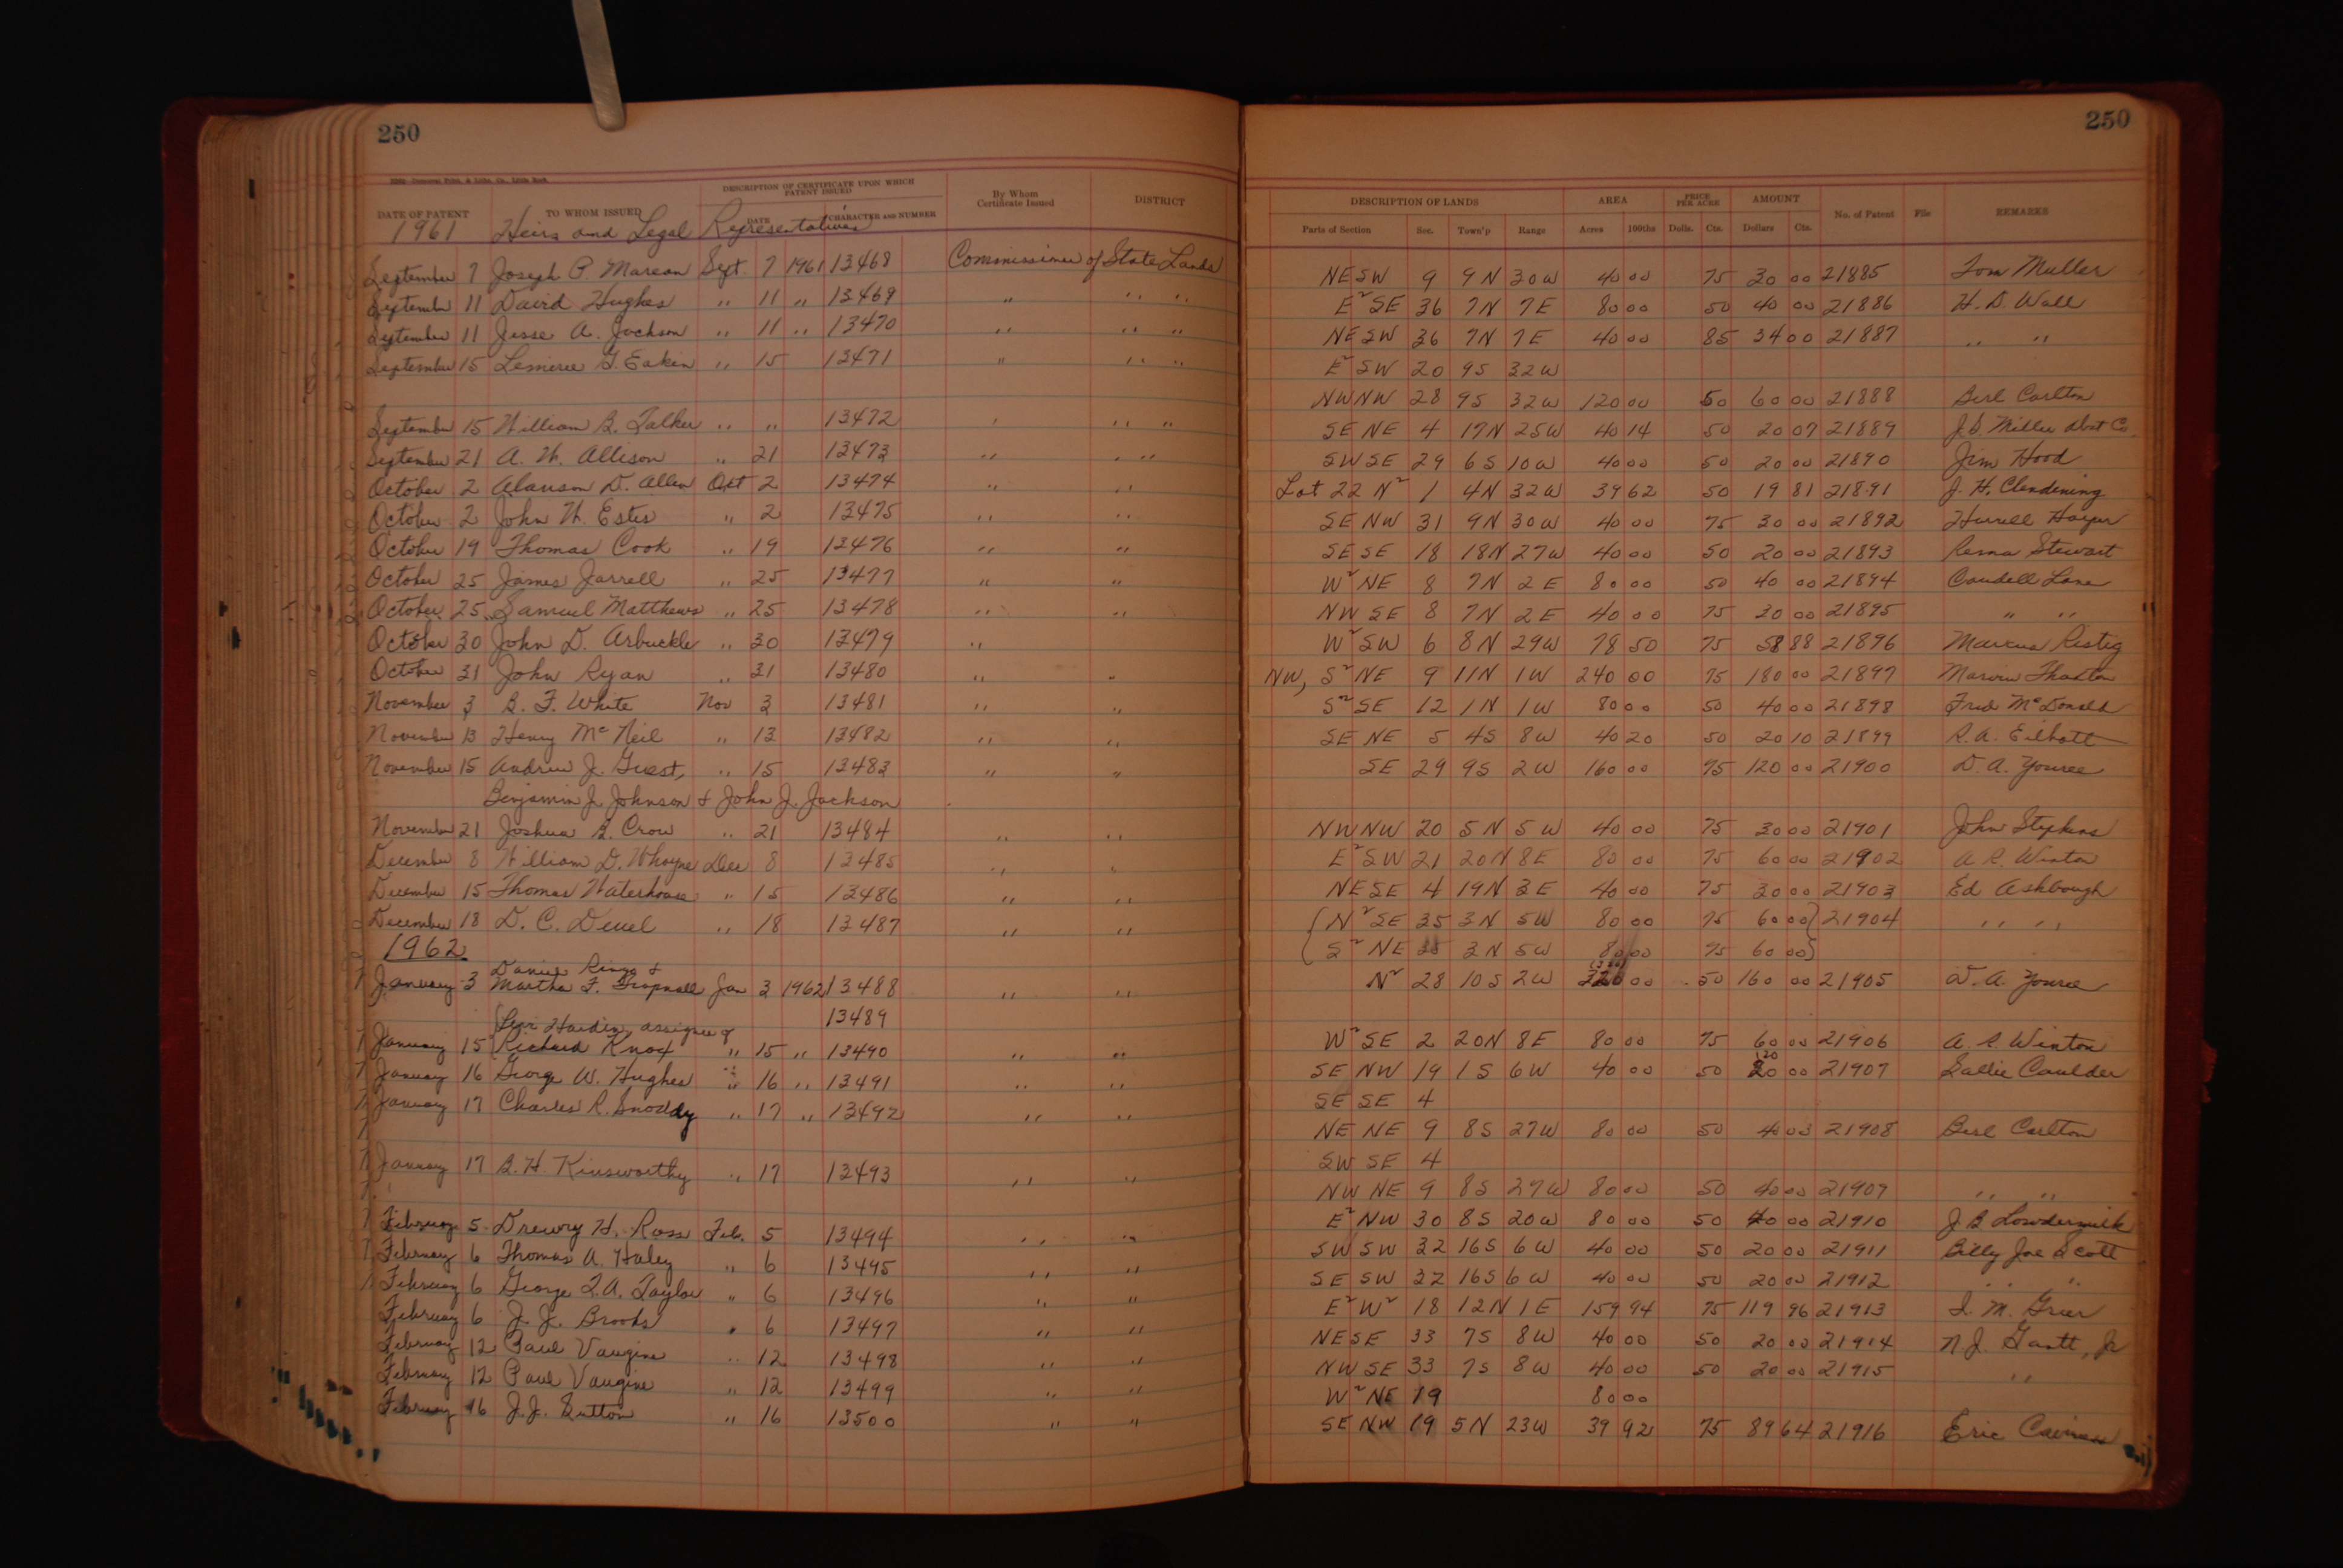 250
DESCRIPTION OF CERTIFICATE UPON WHICH PATENT ISSUED
DATE OF PATENT TO WHOM ISSUED DATE CHARACTER AND NUMBER By Whom Certificate Issued DISTRICT
1961 Heirs and Legal Representatives
September 7 Joseph P. Marean Sept. 7 1961 13468 Commissioner of State Lands
September 11 David Hughes " 11 " 13469 " " "
September 11 Jesse A. Jackson " 11 " 13470 " " "
September 15 G. Eakin " 15 13471 " " "
September 15 William B. " " 13472 " " "
September 21 A. W. Allison " 21 13473 " " "
October 2 Alanson D. Allen Oct 2 13474 " "
October 2 John W. Estes " 2 13475 " "
October 19 Thomas Cook " 19 13476 " "
October 25 James Jarrell " 25 13477 " "
October 25 Samuel Matthews " 25 13478 " "
October 30 John D. Arbuckle " 30 13479 "
October 31 John Ryan " 31 13480 " "
November 3 B. F. White Nov 3 13481 " "
November 13 Henry McNeil " 13 13482 " "
November 15 Andrew J. Guest, " 15 13483 " "
Benjamin J. Johnson & John J. Jackson
November 21 Joshua B. Crow " 21 13484 " "
December 8 William D. Whayne Dec 8 13485 " "
December 15 Thomas Waterhouse " 15 13486 " "
December 18 D. C. Deuel " 18 13487 " "
1962
Daniel Ringo &
January 3 Martha F. Trapnall Jan 3 1962 13488 " "
Levi Hardin, assignee of 13489
January 15 Richard Knox " 15 " 13490 " "
January 16 George W. Hughes " 16 " 13491 " "
January 17 Charles R. Snoddy " 17 " 13492 " "
January 17 B. H. Kinsworthy " 17 13493 " "
February 5 Drewry H. Ross Feb. 5 13494 " "
February 6 Thomas A. Haley " 6 13495 " "
February 6 George T. A. Taylor " 6 13496 " "
February 6 J. J. Brooks " 6 13497 " "
February 12 Paul Vaugine " 12 13498 " "
February 12 Paul Vaugine " 12 13499 " "
February 16 J. J. Sutton " 16 13500 " "
250
DESCRIPTION OF LANDS AREA PRICE PER ACRE AMOUNT No. of Patent File REMARKS
Parts of Section Sec. Town'p Range Acres 100ths Dolls. Cts. Dollars Cts.
NE SW 9 9N 30W 40 00 75 30 00 21885 Tom Muller
E² SE 36 7N 7E 80 00 50 40 00 21886 H. D. Wall
NE SW 36 7N 7E 40 00 85 34 00 21887 " "
E² SW 20 9S 32W
NW NW 28 9S 32W 120 00 50 60 00 21888 Berl Carlton
SE NE 4 17N 25W 40 14 50 20 07 21889 J. D. Miller Abst Co.
SW SE 29 6S 10W 40 00 50 20 00 21890 Jim Hood
Lot 22 N² 1 4N 32W 39 62 50 19 81 21891 J. H. Clendening
SE NW 31 9N 30W 40 00 75 30 00 21892
SE SE 18 18N 27W 40 00 50 20 00 21893 Stewart
W² NE 8 7N 2E 80 00 50 40 00 21894 Caudell Lane
NW SE 8 7N 2E 40 00 75 30 00 21895 " "
W² SW 6 8N 29W 78 50 75 58 88 21896 Marcus
NW, S² NE 9 11N 1W 240 00 75 180 00 21897 Marvin Thaxton
S² SE 12 1N 1W 80 00 50 40 00 21898 Fred McDonald
SE NE 5 4S 8W 40 20 50 20 10 21899 R. A. Eilbott
SE 29 9S 2W 160 00 75 120 00 21900 D. A. Youree
NW NW 20 5N 5W 40 00 75 30 00 21901 John Stephens
E² SW 21 20N 8E 80 00 75 60 00 21902 A. R. Winton
NE SE 4 19N 3E 40 00 75 30 00 21903 Ed Ashbough
N² SE 35 3N 5W 80 00 75 60 00 21904 " "
S² NE 35 3N 5W 80 00 75 60 00
N² 28 10S 2W 320 00 50 160 00 21905 D. A. Youree
W² SE 2 20N 8E 80 00 75 60 00 21906 A. R. Winton
SE NW 19 1S 6W 40 00 50 20 00 21907 Sallie Caulder
SE SE 4
NE NE 9 8S 27W 80 00 50 40 00 21908 Berl Carlton
SW SE 4
NW NE 9 8S 27W 80 00 50 40 00 21909 " "
E² NW 30 8S 20W 80 00 50 40 00 21910 J. B. Lowdermilk
SW SW 32 16S 6W 40 00 50 20 00 21911 Billy Joe Scott
SE SW 32 16S 6W 40 00 50 20 00 21912 " "
E² W² 18 12N 1E 159 94 75 119 96 21913 I. M. Greer
NE SE 33 7S 8W 40 00 50 20 00 21914 N. J. Gantt, Jr
NW SE 33 7S 8W 40 00 50 20 00 21915 "
W² NE 19 80 00
SE NW 19 5N 23W 39 92 75 89 64 21916 Eric